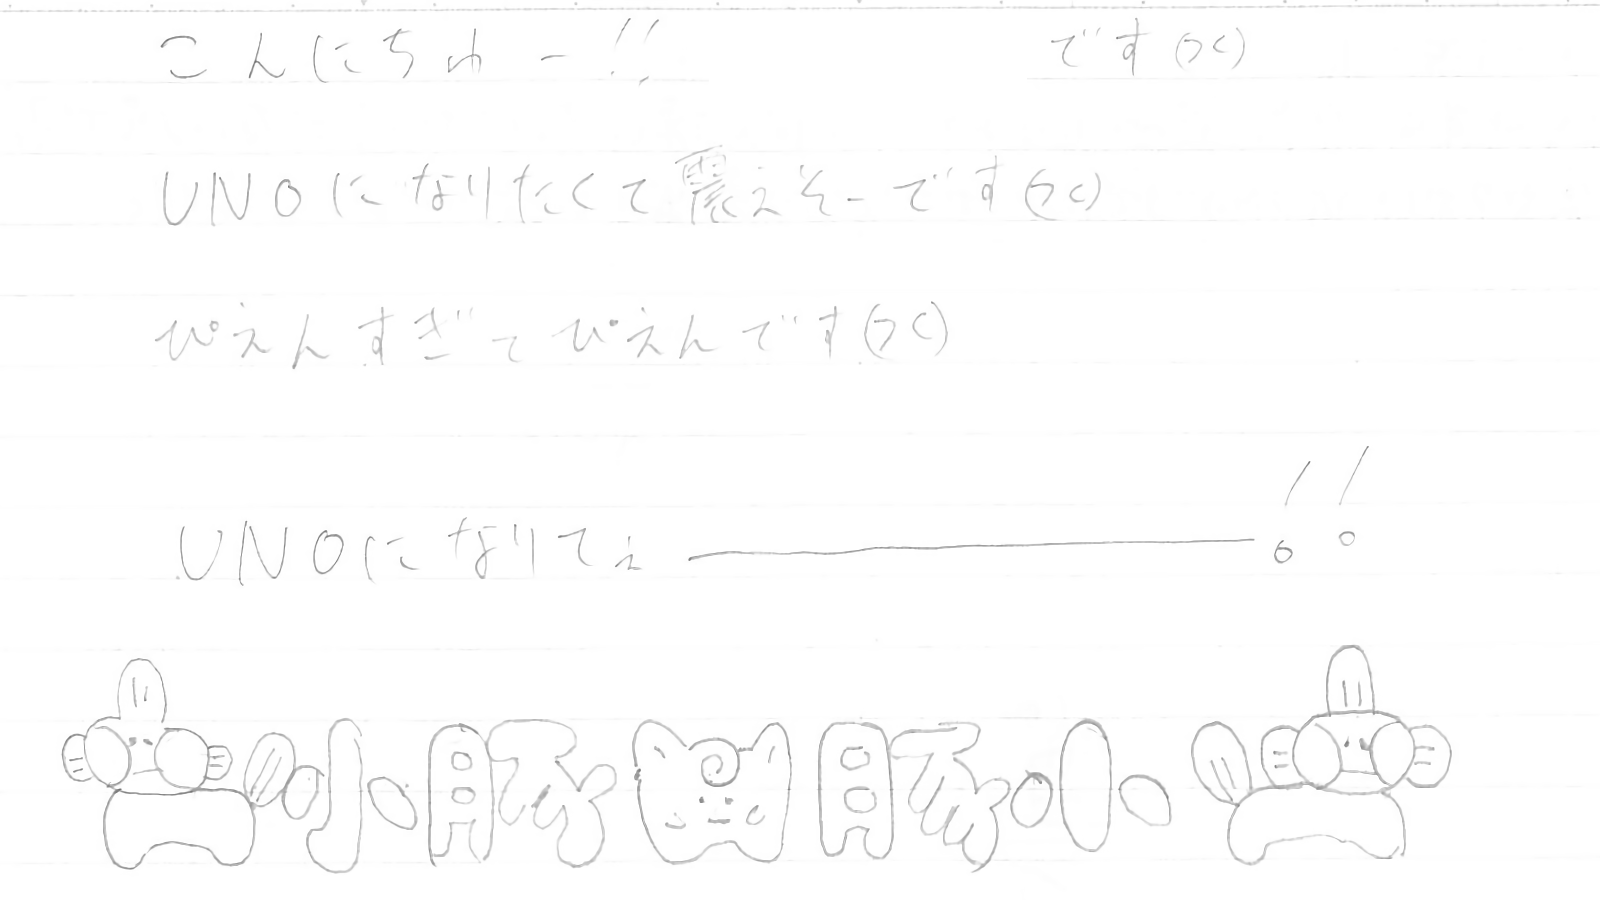 こんにちゅー!! です(つく)
UNOになりたくて震えそーです(つく)
ぴえんすぎてぴえんです(つく)
UNOになりてぇー!!
小豚 豚小